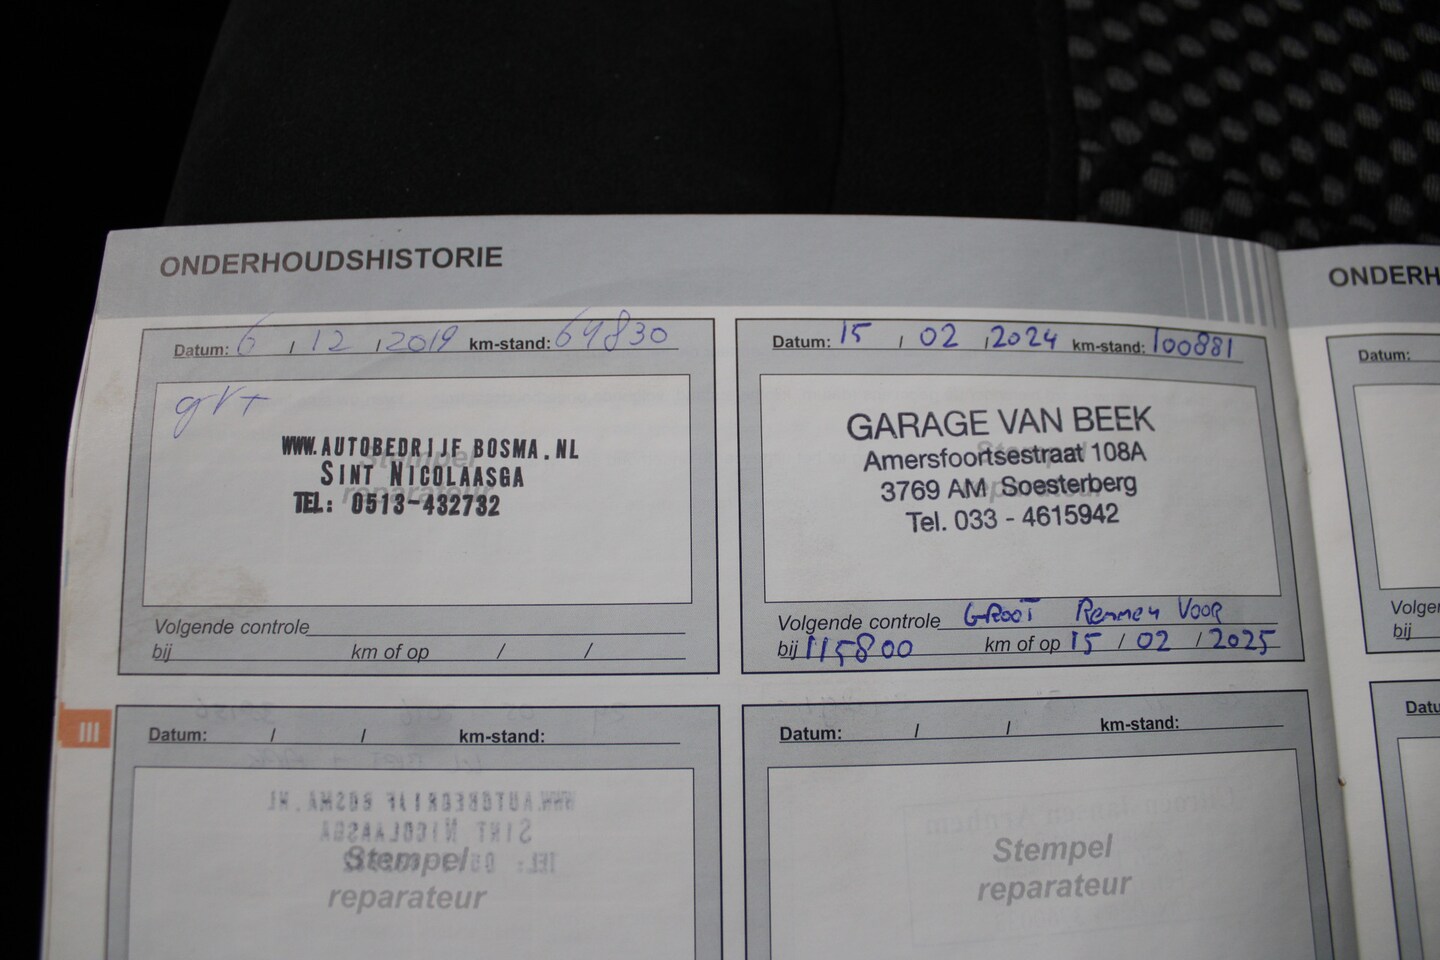 ONDERHOUDSHISTORIE
Datum: 6 / 12 / 2019 km-stand: 64830
grt
WWW.AUTOBEDRIJF BOSMA.NL
SINT NICOLAASGA
TEL: 0513-432732
Stempel
reparateur
Volgende controle
bij km of op / /
Datum: 15 / 02 / 2024 km-stand: 100881
GARAGE VAN BEEK
Amersfoortsestraat 108A
3769 AM Soesterberg
Tel. 033 - 4615942
Stempel
reparateur
Volgende controle GROOT Remmen VOOR
bij 115800 km of op 15 / 02 / 2025
III
Datum: / / km-stand:
Stempel
reparateur
Datum: / / km-stand:
Stempel
reparateur
ONDERH
Datum:
Volge
bij
Datu